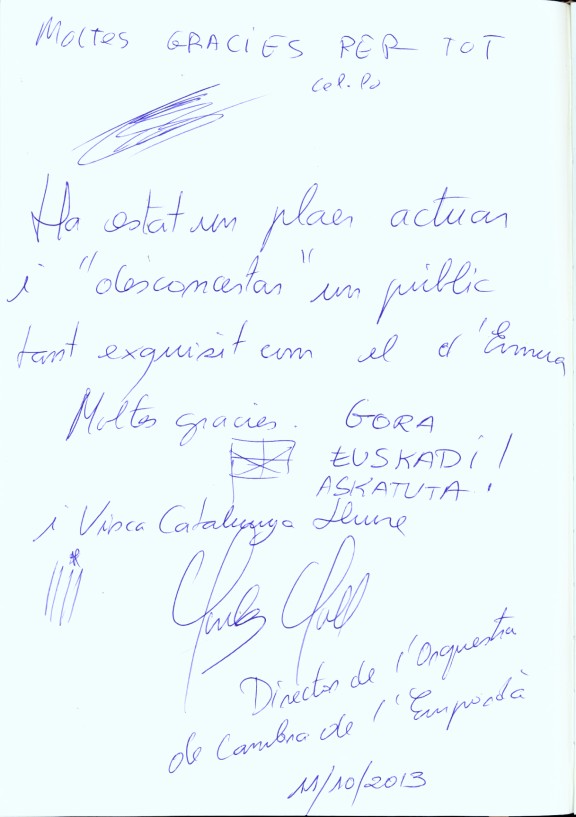 Moltes GRACIES PER TOT
Ha estat un plaer actuar
i "desconcertar" un públic
tant exquisit com el d'Ermua
Moltes gracies. GORA
EUSKADI!
ASKATUTA!
i Visca Catalunya lliure
Carles Coll
Director de l'Orquestra
de Cambra de l'Empordà
11/10/2013